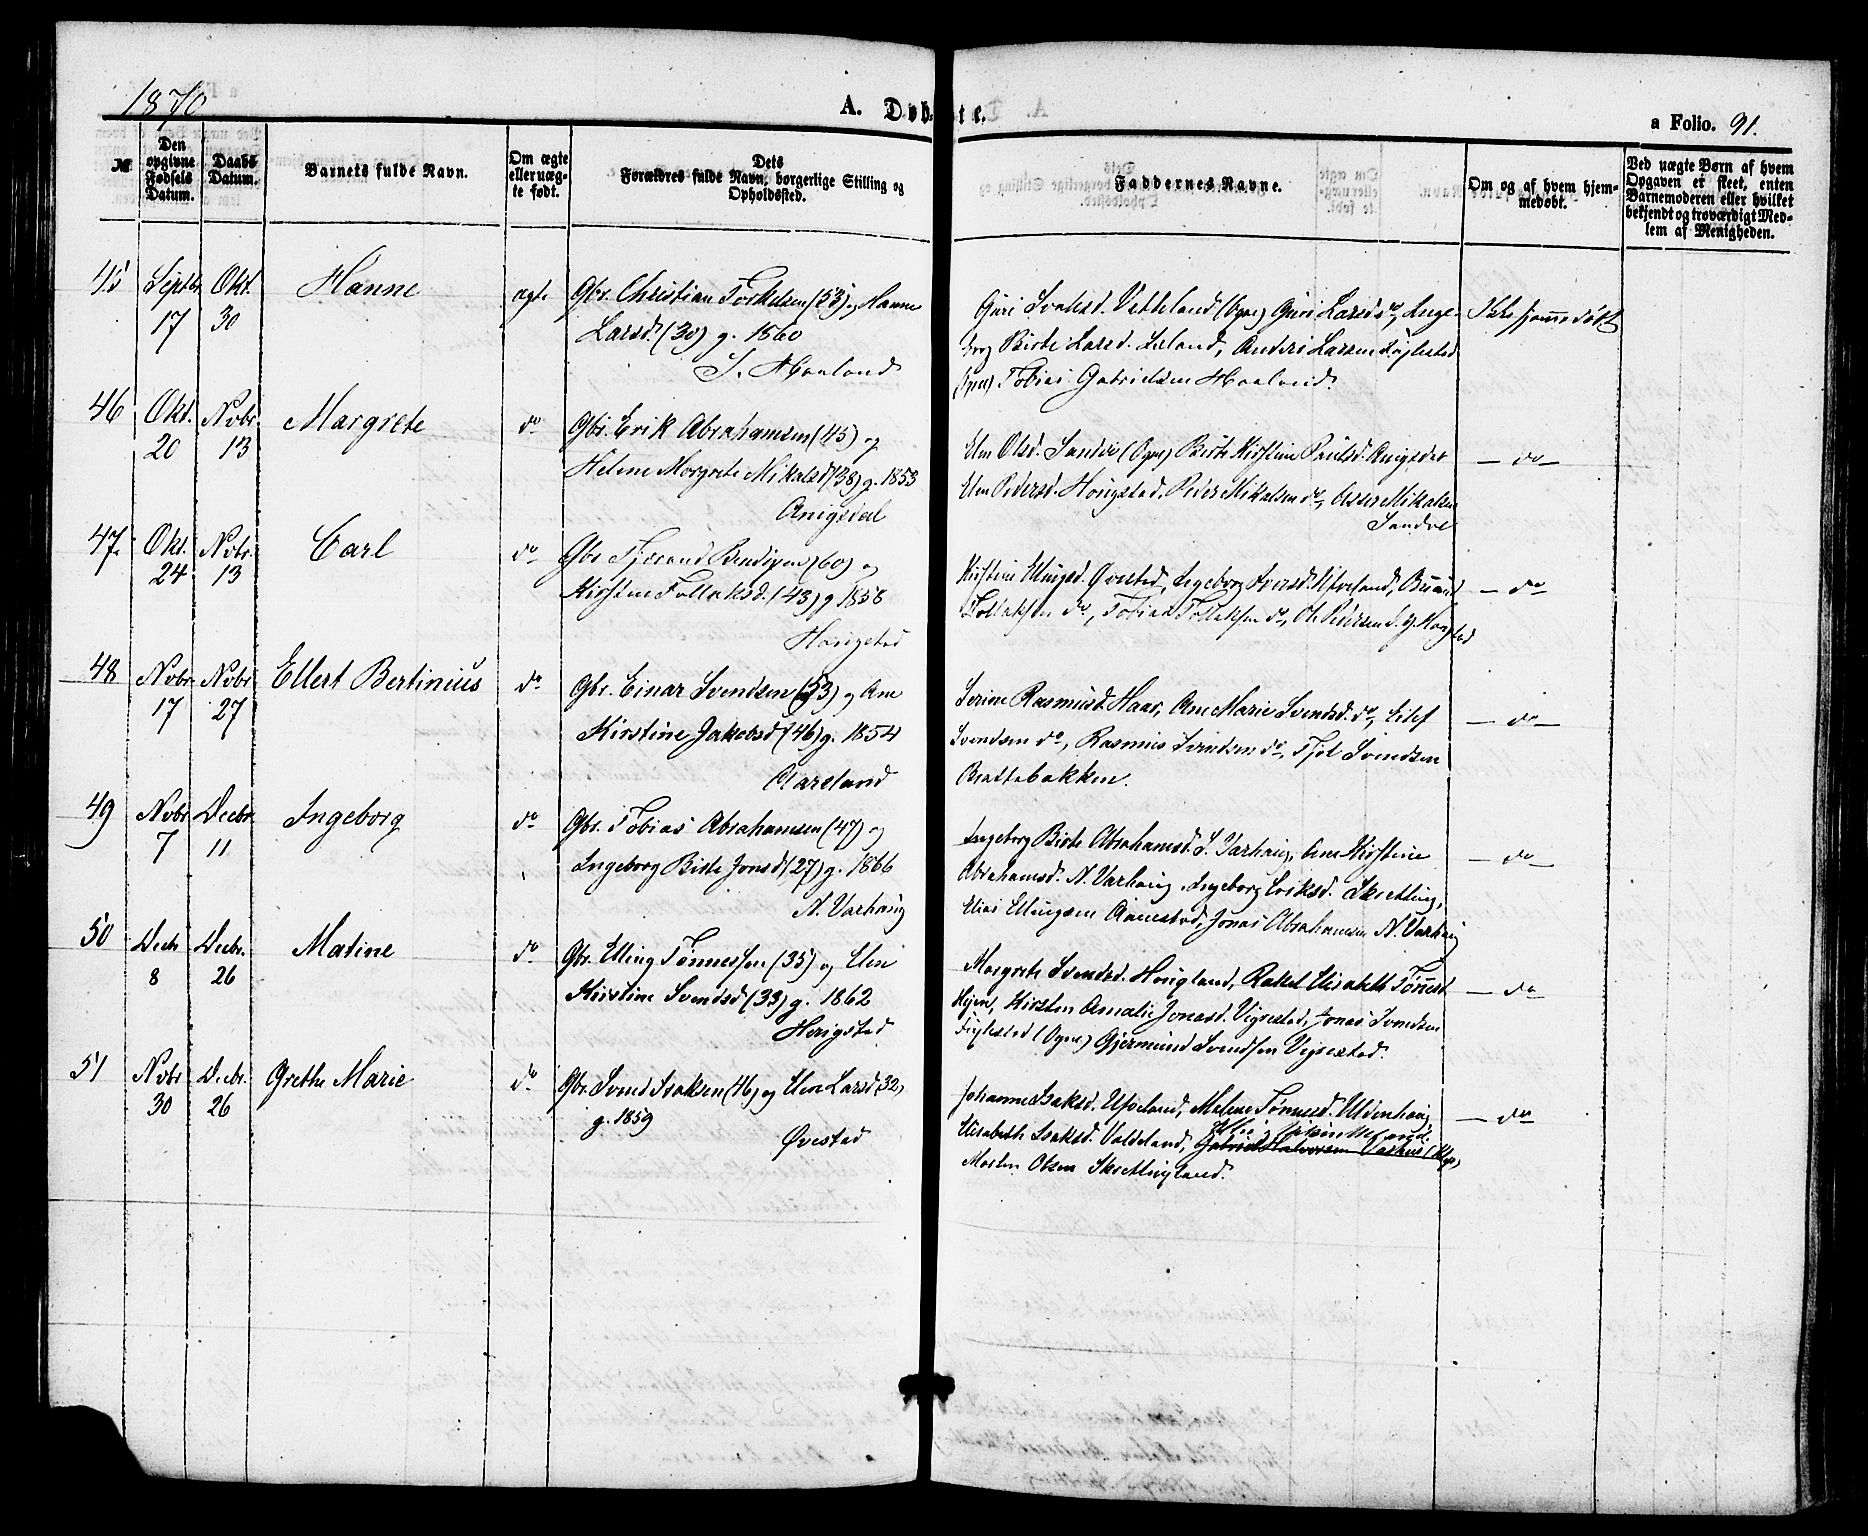 1870
A. Døbte.
a Folio. 91.
№
Den opgivne Fødsels Datum.
Daabs Datum.
Barnets fulde Navn.
Om ægte eller uægte født.
Dets Forældres fulde Navn, borgerlige Stilling og Opholdssted.
Faddernes Navne.
Om og af hvem hjemmedøbt.
Ved uægte Børn af hvem Opgaven er skeet, enten Barnemoderen eller hvilket bekjendt og troværdigt Medlem af Menigheden.
45 Septbr 17 Okt. 30 Hanne ægte
Gbr. Christian Torkelsen (53) og Hanne
Larsd. (30) g. 1860
S. Haaland
Guri Svalesd. Vetteland (Ogne) Guri Larsd do, Inge-
borg Birte Larsd. Leland, Anders Larsen Føglestad
(Ogne) Tobias Gabrielsen Haaland
Ikke hjemmedøbt
46 Okt. 20 Nvbr. 13 Margrete do
Gbr. Erik Abrahamsen (45) og
Helene Margrete Mikalsd (38) g. 1853
Anigsdal
Elen Olsd. Sandve (Ogne) Birte Kirstine Paulsd. Anigsdal
Elen Pedersd. Hougstad, Peder Mikalsen do, Asser Mikalsen
Sandve
— do —
47. Okt. 24 Nvbr. 13 Carl do
Gbr Tjerand Bendixen (60) og
Kirsten Tollaksd. (43) g 1858
Hougstad
Kirstine Ellingsd. Øvested, Ingeborg Iversd. Utveland,
Tollaksen do, Tobias Tollaksen do, Ole Pedersen
— do
48 Nvbr 17 Nvbr 27 Ellert Bertinius do
Gbr. Einar Svendsen (53) og Ane
Kirstine Jakobsd (46) g. 1854
Aareland
Serine Rasmusd. Haar, Ane Marie Svendsd. do, Eilef
Svendsen do, Rasmus Svendsen do, Tjøl Svendsen
Brattebakken.
— do —
49 Nvbr 7 Decbr 11 Ingeborg do
Gbr. Tobias Abrahamsen (47) og
Ingeborg Birte Jonsd (27) g. 1866
N. Varhaug
Ingeborg Birte Abrahamsd. S. Varhaug, Ane Kirstine
Abrahamsd. N. Varhaug, Ingeborg Eriksd. Skretting,
Elias Ellingsen Aanestad, Jonas Abrahamsen N. Varhaug
— do —
50 Decbr 8 Decbr. 26 Matine do
Gbr. Elling Tønnessen (35) og Elen
Kirstine Svendsd (33) g. 1862
Herigstad
Margrete Svendsd. Hougland, Rakel Elisabeth Tønnesd.
Kirsten Amalie Jonasd. Vigrestad, Jonas Svendsen
Fuglestad (Ogne) Gjermund Svendsen Vigrestad.
— do
51 Nvbr 30 Decbr. 26 Grethe Marie do
Gbr. Svend Isaksen (46) og Elen Larsd (32)
g. 1859
Øvestad
Johanne Isaksd. Ueland, Malene Tønnesd. Uldenhaug,
Elisabeth Isaksd. Valdeland, Gabriel Halvorsen Varhus (Klep)
Morten Olsen Skrettingland.
— do